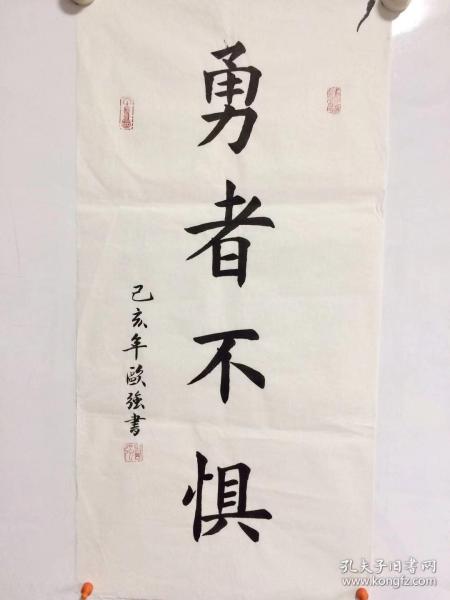 勇者不惧
己亥年歐強書
孔夫子旧书网
www.kongfz.com